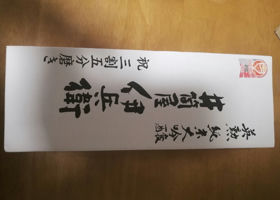 英勲 純米大吟醸
井筒屋伊兵衛
祝 三割五分磨き